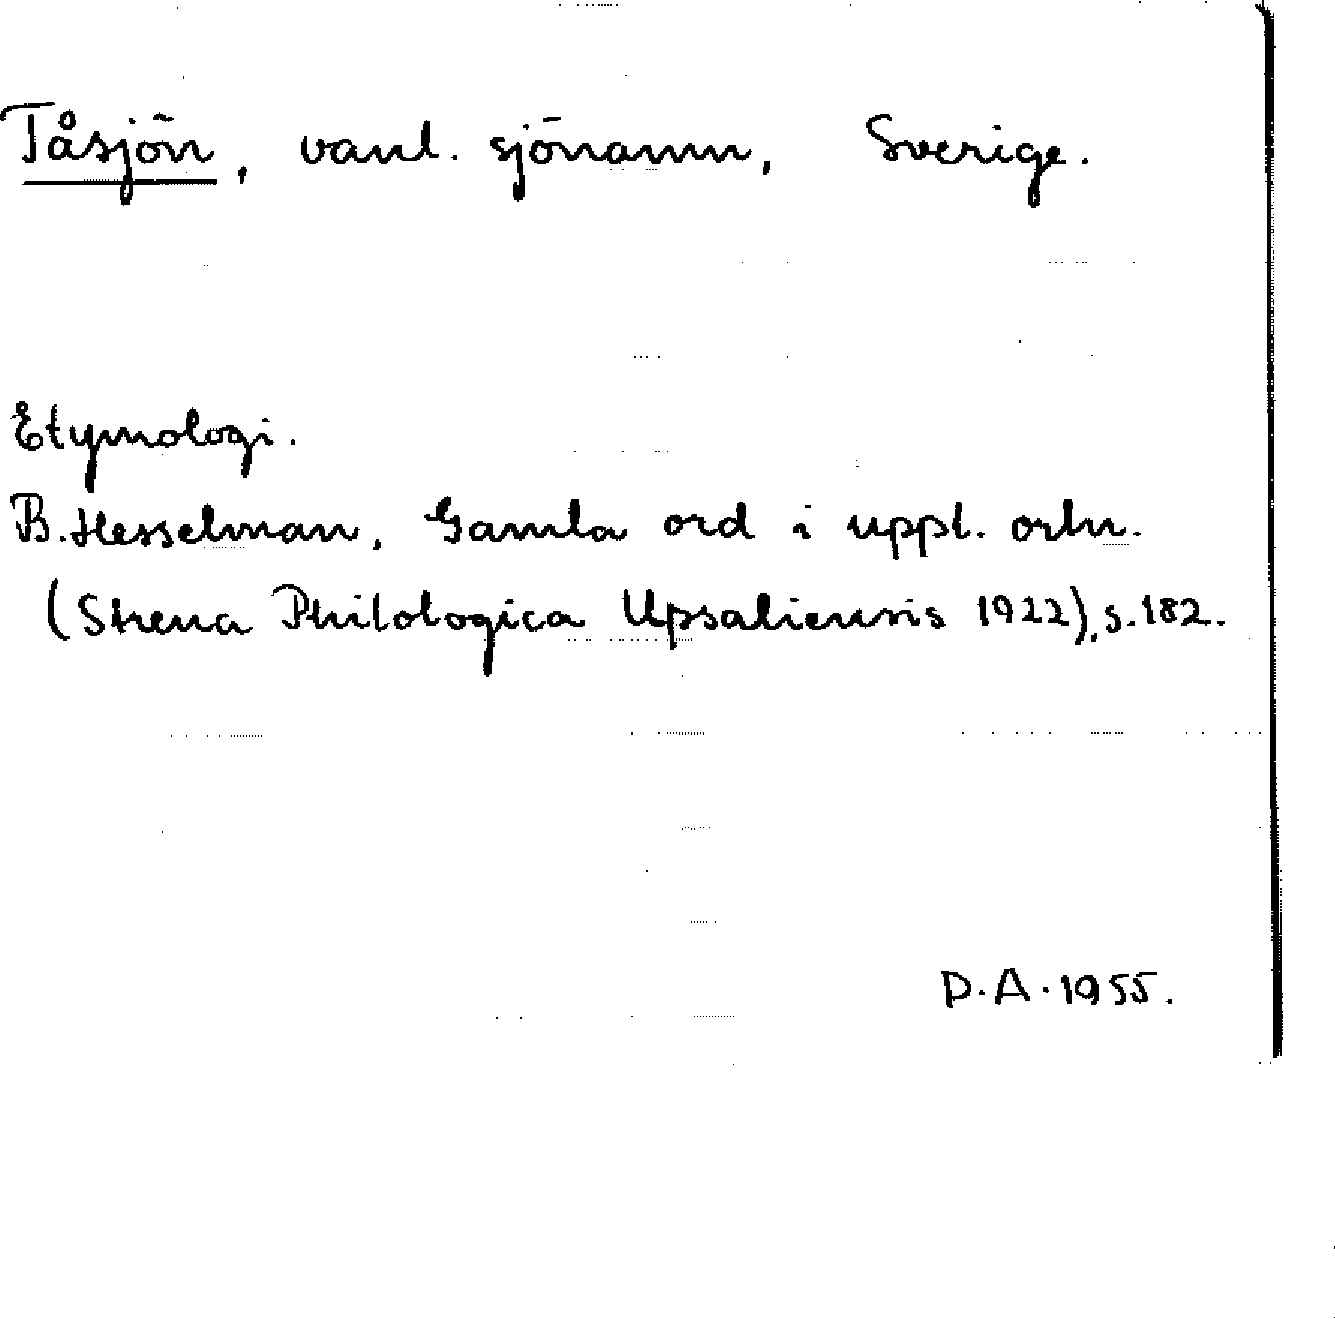 Tåsjön, vanl. sjönamn, Sverige.
Etymologi.
B. Hesselman, Gamla ord i uppl. ortn.
(Strena Philologica Upsaliensis 1922), s. 182.
D.A. 1955.